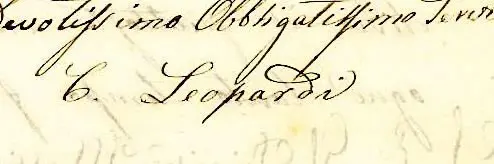 Devotissimo Obbligatissimo Serv
G. Leopardi